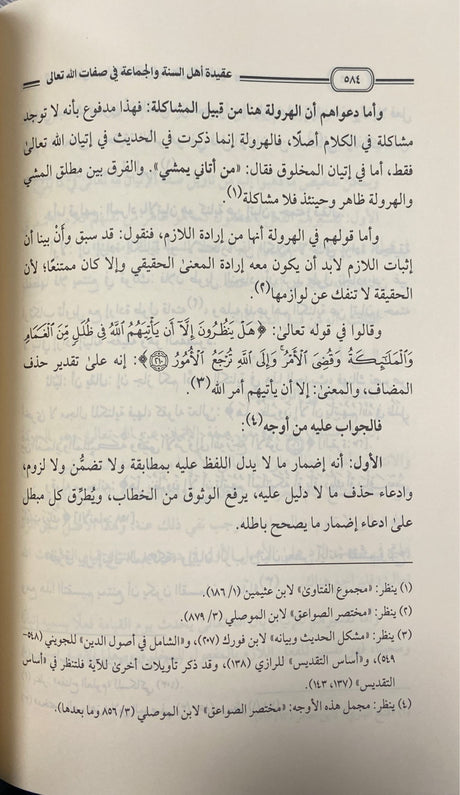 ٥٨٤
عقيدة أهل السنة والجماعة في صفات الله تعالى
وأما دعواهم أن الهرولة هنا من قبيل المشاكلة: فهذا مدفوع بأنه لا توجد
مشاكلة في الكلام أصلًا، فالهرولة إنما ذكرت في الحديث في إتيان الله تعالىٰ
فقط، أما في إتيان المخلوق فقال: «من أتاني يمشي». والفرق بين مطلق المشي
والهرولة ظاهر وحينئذ فلا مشاكلة(١).
وأما قولهم في الهرولة أنها من إرادة اللازم، فنقول: قد سبق وأنْ بينا أن
إثبات اللازم لابد أن يكون معه إرادة المعنىٰ الحقيقي وإلا كان ممتنعًا؛ لأن
الحقيقة لا تنفك عن لوازمها(٢).
وقالوا في قوله تعالىٰ: ﴿هَلْ يَنظُرُونَ إِلَّآ أَن يَأْتِيَهُمُ ٱللَّهُ فِي ظُلَلٍ مِّنَ ٱلْغَمَامِ
وَٱلْمَلَٰٓئِكَةُ وَقُضِيَ ٱلْأَمْرُ ۚ وَإِلَى ٱللَّهِ تُرْجَعُ ٱلْأُمُورُ ۝٢١٠﴾: إنه علىٰ تقدير حذف
المضاف، والمعنىٰ: إلا أن يأتيهم أمر الله(٣).
فالجواب عليه من أوجه(٤).
الأول: أنه إضمار ما لا يدل اللفظ عليه بمطابقة ولا تضمُّن ولا لزوم،
وادعاء حذف ما لا دليل عليه، يرفع الوثوق من الخطاب، ويُطرِّق كل مبطل
علىٰ ادعاء إضمار ما يصحح باطله.
(١) ينظر: «مجموع الفتاوىٰ» لابن عثيمين (١/ ١٨٦).
(٢) ينظر: «مختصر الصواعق» لابن الموصلي (٣/ ٨٧٩).
(٣) ينظر: «مشكل الحديث وبيانه» لابن فورك (٢٠٧)، و«الشامل في أصول الدين» للجويني (٥٤٨-
٥٤٩)، و«أساس التقديس» للرازي (١٣٨)، وقد ذكر تأويلات أخرىٰ للآية فلتنظر في «أساس
التقديس» (١٣٧، ١٤٣).
(٤) ينظر: مجمل هذه الأوجه: «مختصر الصواعق» لابن الموصلي (٣/ ٨٥٦ وما بعدها).